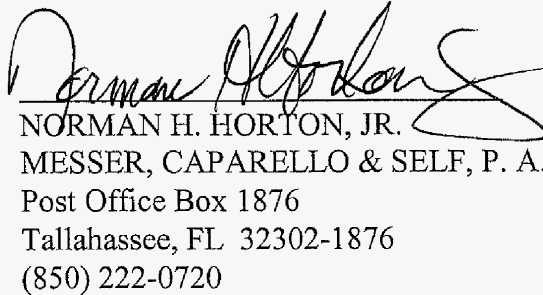 Norman H Horton Jr
NORMAN H. HORTON, JR.
MESSER, CAPARELLO & SELF, P. A.
Post Office Box 1876
Tallahassee, FL  32302-1876
(850) 222-0720